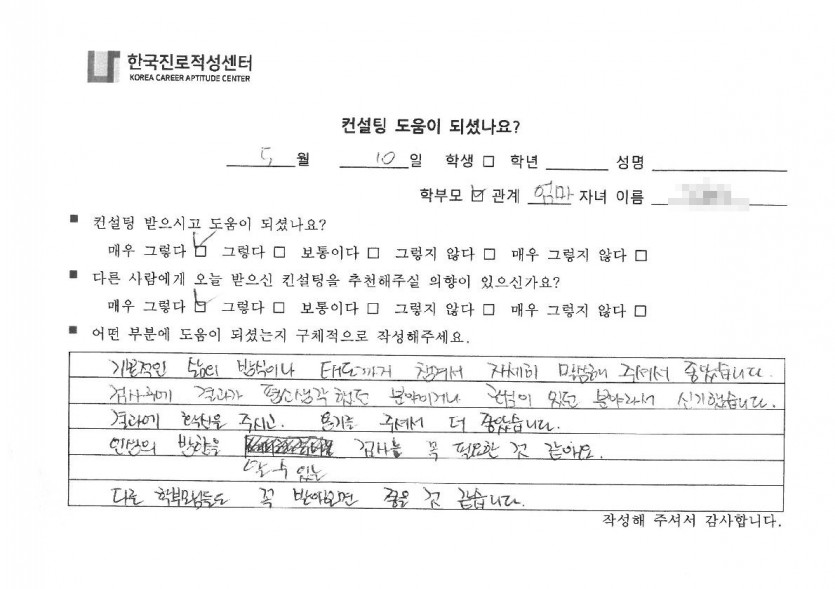 한국진로적성센터
KOREA CAREER APTITUDE CENTER
컨설팅 도움이 되셨나요?
5월 10일 학생 □ 학년 성명
학부모 ☑ 관계 엄마 자녀 이름
■ 컨설팅 받으시고 도움이 되셨나요?
매우 그렇다 ☑ 그렇다 □ 보통이다 □ 그렇지 않다 □ 매우 그렇지 않다 □
■ 다른 사람에게 오늘 받으신 컨설팅을 추천해주실 의향이 있으신가요?
매우 그렇다 ☑ 그렇다 □ 보통이다 □ 그렇지 않다 □ 매우 그렇지 않다 □
■ 어떤 부분에 도움이 되셨는지 구체적으로 작성해주세요.
기본적인 삶의 방식이나 태도까지 자세히 말씀해 주셔서 좋았습니다.
결과가 평소생각했던 분야이거나 관심이 있던 분야라서 신기했습니다.
결과에 확신을 주시고. 용기를 주셔서 더 좋았습니다.
방향을 검사는 꼭 필요한 것 같아요.
알 수 있는
다른 학부모님들도 꼭 받아보면 좋을 것 같습니다.
작성해 주셔서 감사합니다.